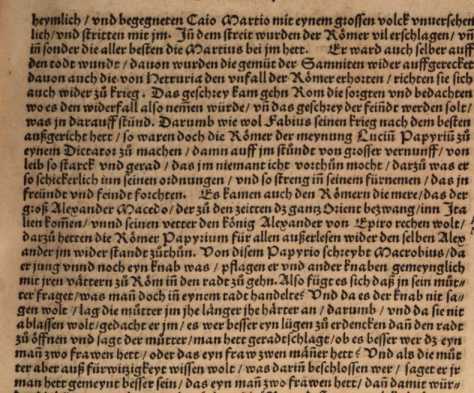 heymlich / vnd begegneten Caio Martio mit eynem grossen volck vnuersehen
lich / vnd stritten mit jm. Jn̄ dem streit wurden der Römer vil erschlagen / vn̄
in̄ sonder die aller besten die Martius bei jm hett. Er ward auch selber auff
den todt wundt / dauon wurden die gemüt der Samniten wider auffgerecket
dauon auch die von Hetruria den vnfall der Römer erhorten / richten sie sich
auch wider zů krieg. Das geschrey kam gehn Rom die sorgten vnd bedachten
wo es den widerfall also nem̄en würde / vn̄ das geschrey der feindt werden solt /
was jn darauff stünd. Darumb wie wol Fabius seinen krieg nach dem besten
außgericht hett / so waren doch die Römer der meynung Luciū Papyriū zů
eynem Dictator zů machen / damn auff jm stůndt von grosser vernunff / von
leib so starck vnd gerad / das jm niemant icht vorthůn mocht / darzů was er
so schickerlich iun seinen ordnungen / vnd so streng in̄ seinem fürnemen / das jn
freindt vnd feindt forchten. Es kamen auch den Römern die mere / das der
groß Alexander Macedo / der zů den zeitten dz gantz Orient bezwang / inn Jta
lien kom̄en / vnnd seinen vetter den könig Alexander von Epiro rechen wolt /
darzů hetten die Römer Papyrium für allen außerlesen wider den selben Alex
ander jm widerstandt zůthůn. Von disem Papyrio schreybt Macrobius / da
er jung vnnd noch eyn knab was / pflagen er vnd ander knaben gemeynglich
mit jren vättern zů Röm in̄ den radt zů gehn. Also fůgt es sich daß jn sein můt⸗
ter fraget / was man̄ doch in̄ eynem radt handelte? Vnd da es der knab nit sa⸗
gen wolt / lag die můtter jm jhe länger jhe härter an / darumb / vnd da sie nit
ablassen wolt / gedacht er jm / es wer besser eyn lügen zů erdencken dan̄ den radt
zů öffnen vnd sagt der můtter / man hett geradtschlagt / ob es besser wer dz eyn
man̄ zwo frawen hett / oder das eyn fraw zwen mäner hett? Vnd als die můt
ter aber auß fürwizigkeyt wissen wolt / was darin̄ beschlossen wer / saget er jr
man hett gemeynt besser sein / das eyn man̄ zwo frawen hett / dan̄ damit wür⸗